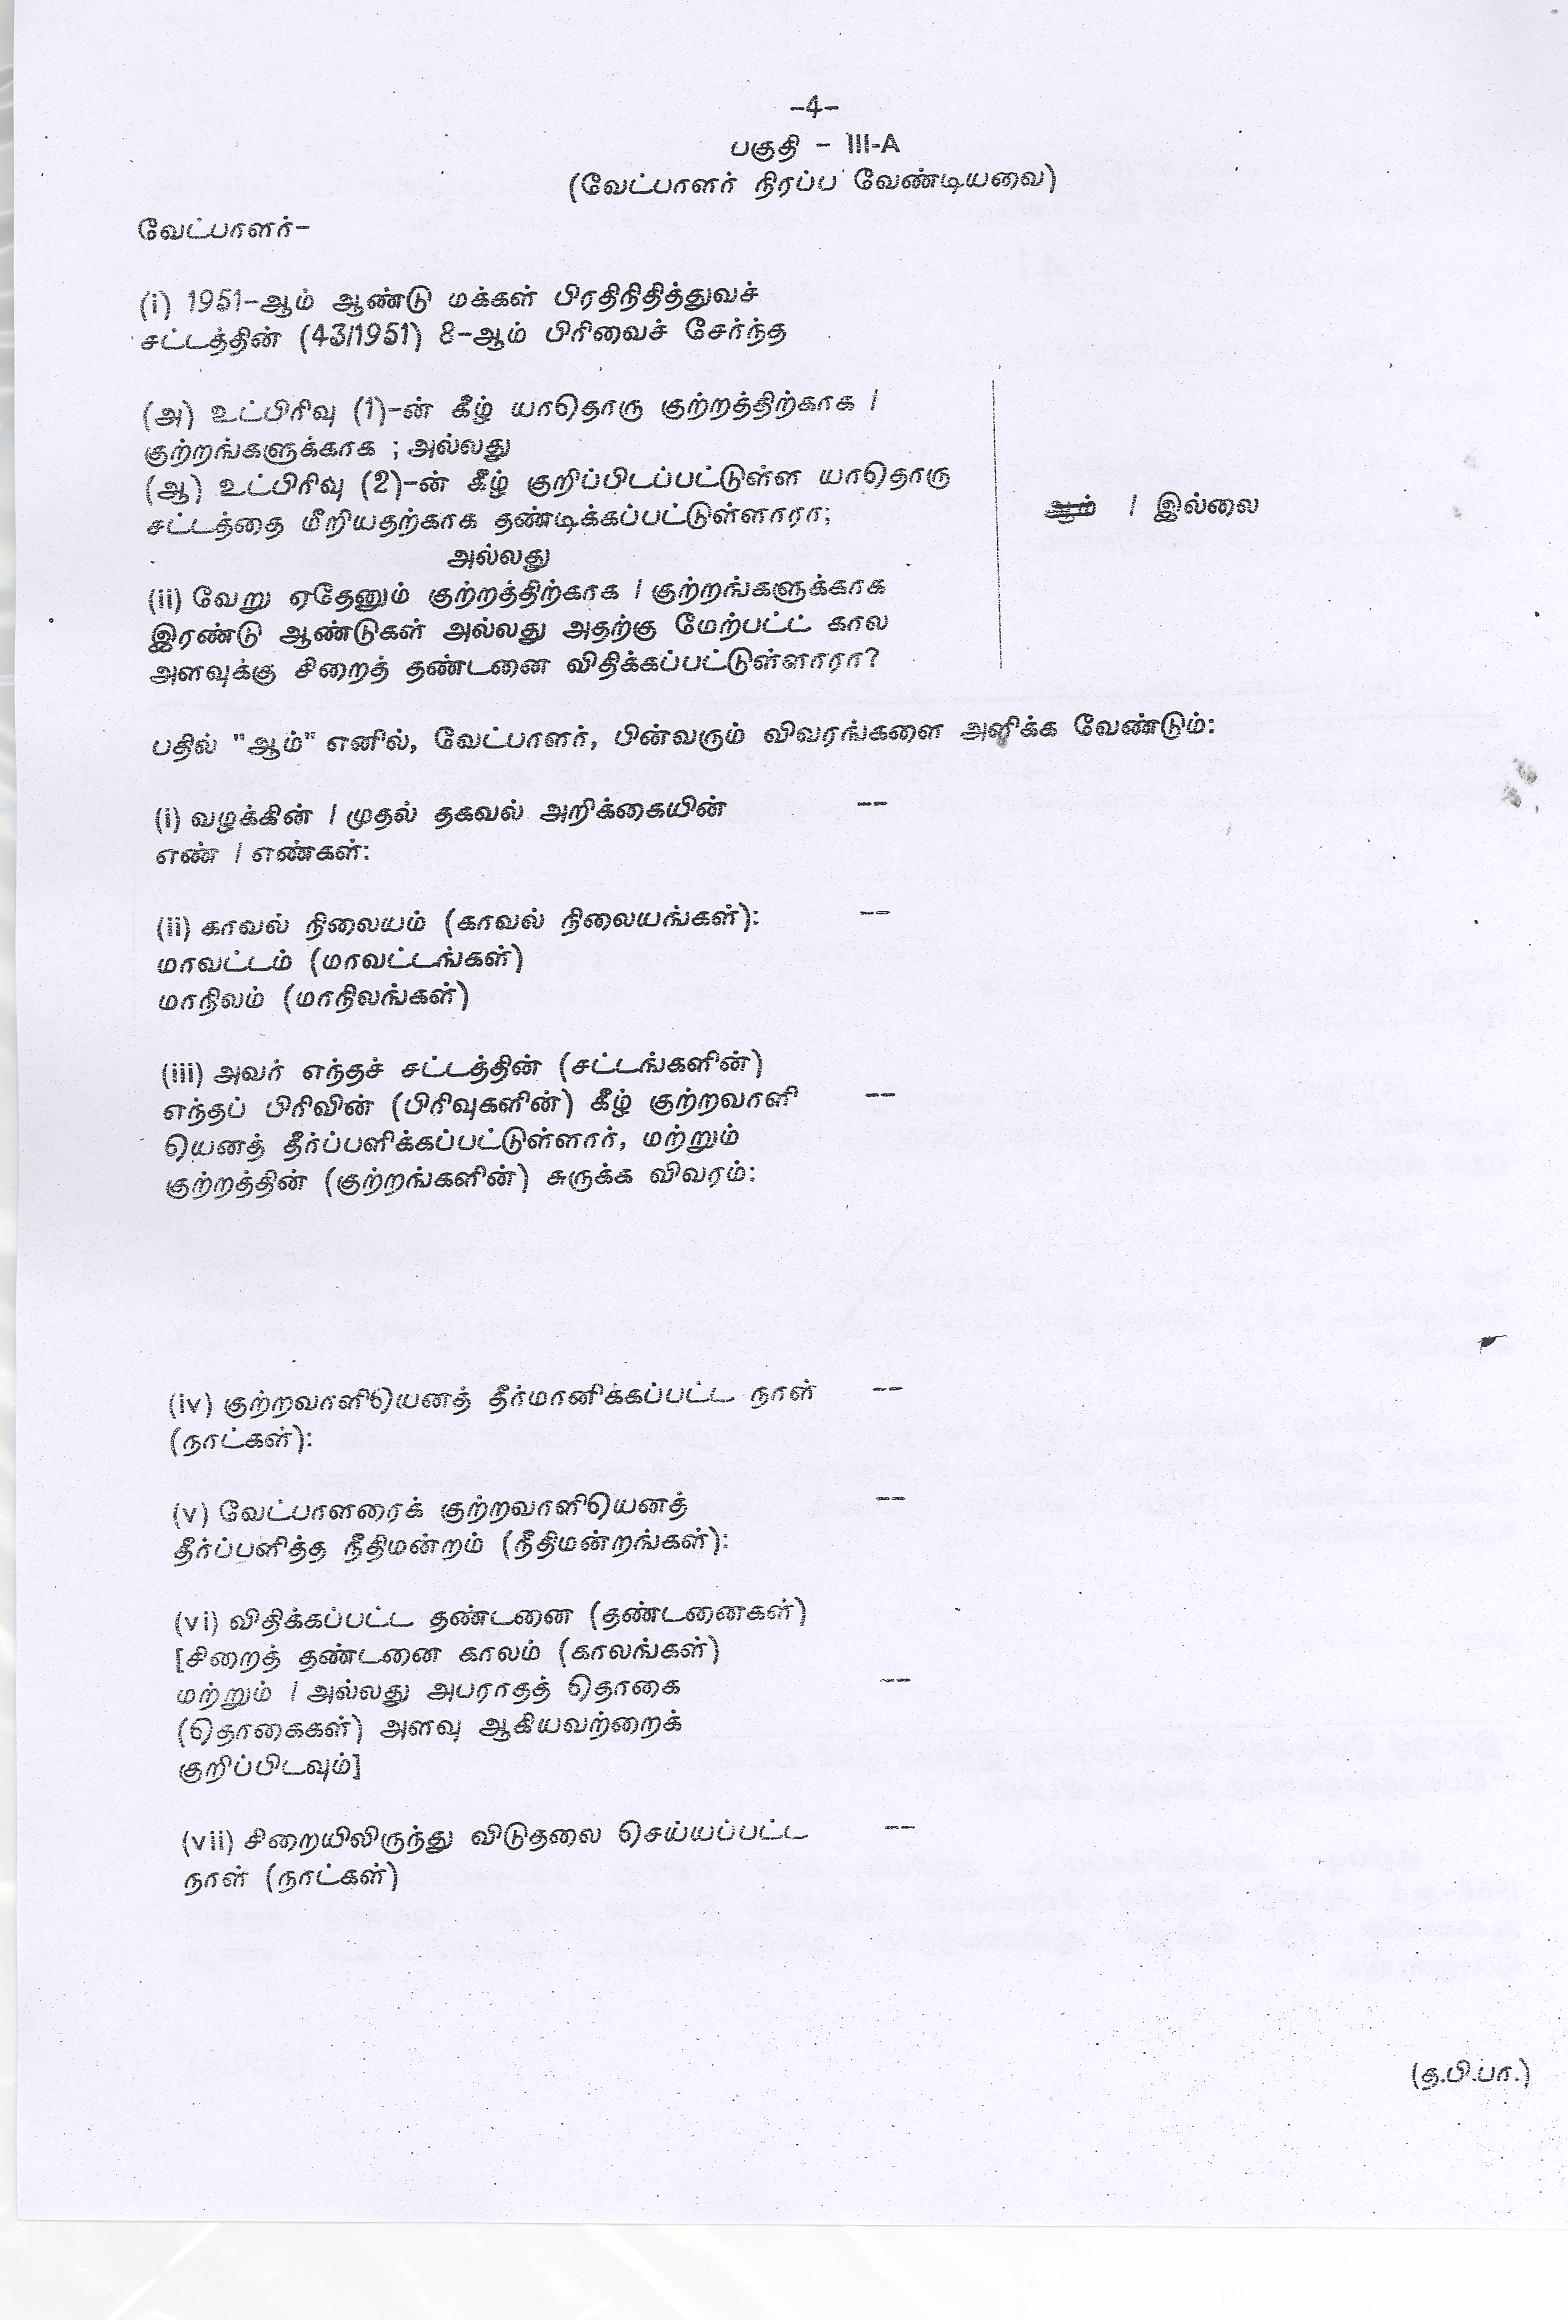 -4-
பகுதி - III-A
(வேட்பாளர் நிரப்ப வேண்டியவை)
வேட்பாளர்-
(i) 1951-ஆம் ஆண்டு மக்கள் பிரதிநிதித்துவச்
சட்டத்தின் (43/1951) 8-ஆம் பிரிவைச் சேர்ந்த
(அ) உட்பிரிவு (1)-ன் கீழ் யாதொரு குற்றத்திற்காக /
குற்றங்களுக்காக ; அல்லது
(ஆ) உட்பிரிவு (2)-ன் கீழ் குறிப்பிடப்பட்டுள்ள யாதொரு
சட்டத்தை மீறியதற்காக தண்டிக்கப்பட்டுள்ளாரா;
ஆம் / இல்லை
அல்லது
(ii) வேறு ஏதேனும் குற்றத்திற்காக / குற்றங்களுக்காக
இரண்டு ஆண்டுகள் அல்லது அதற்கு மேற்பட்ட் கால
அளவுக்கு சிறைத் தண்டனை விதிக்கப்பட்டுள்ளாரா?
பதில் "ஆம்" எனில், வேட்பாளர், பின்வரும் விவரங்களை அளிக்க வேண்டும்:
(i) வழக்கின் / முதல் தகவல் அறிக்கையின் --
எண் / எண்கள்:
(ii) காவல் நிலையம் (காவல் நிலையங்கள்): --
மாவட்டம் (மாவட்டங்கள்)
மாநிலம் (மாநிலங்கள்)
(iii) அவர் எந்தச் சட்டத்தின் (சட்டங்களின்)
எந்தப் பிரிவின் (பிரிவுகளின்) கீழ் குற்றவாளி --
யெனத் தீர்ப்பளிக்கப்பட்டுள்ளார், மற்றும்
குற்றத்தின் (குற்றங்களின்) சுருக்க விவரம்:
(iv) குற்றவாளியெனத் தீர்மானிக்கப்பட்ட நாள் --
(நாட்கள்):
(v) வேட்பாளரைக் குற்றவாளியெனத் --
தீர்ப்பளித்த நீதிமன்றம் (நீதிமன்றங்கள்):
(vi) விதிக்கப்பட்ட தண்டனை (தண்டனைகள்)
[சிறைத் தண்டனை காலம் (காலங்கள்)
மற்றும் / அல்லது அபராதத் தொகை --
(தொகைகள்) அளவு ஆகியவற்றைக்
குறிப்பிடவும்]
(vii) சிறையிலிருந்து விடுதலை செய்யப்பட்ட --
நாள் (நாட்கள்)
(த.பி.பா.)